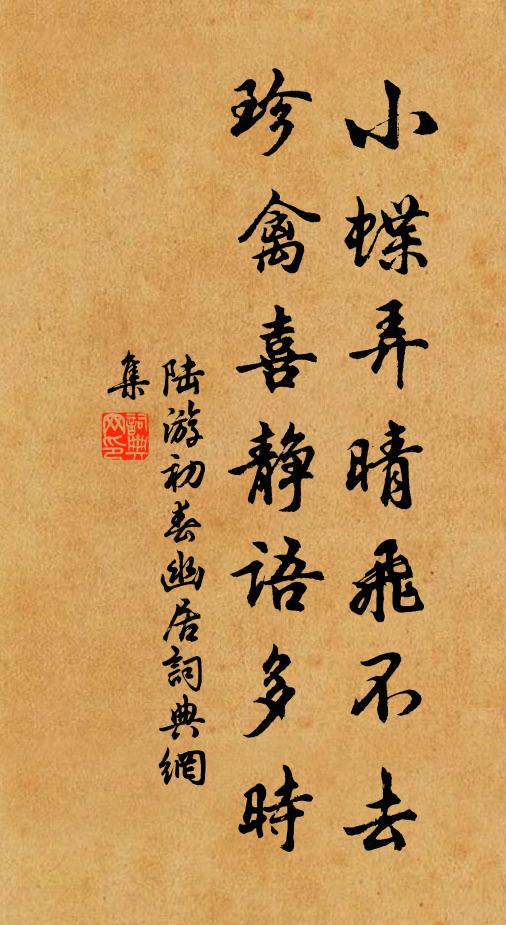 小蝶弄晴飛不去
珍禽喜静語多時
陆游初春幽居詞典網
集
詞典
网印